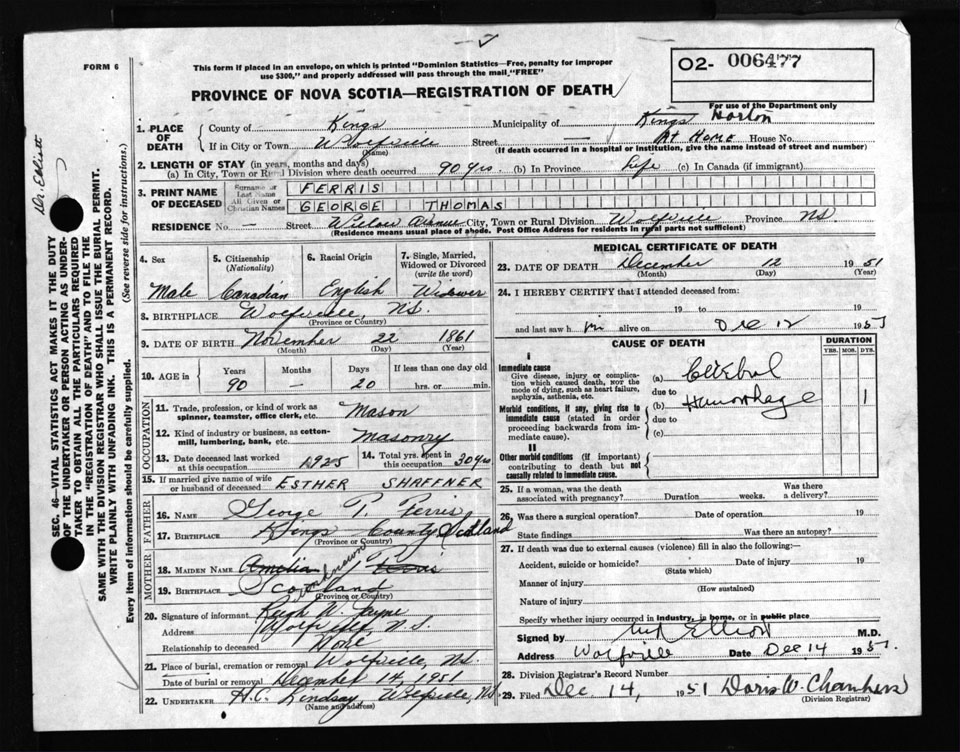 FORM 6
This form if placed in an envelope, on which is printed "Dominion Statistics—Free, penalty for improper
use $300," and properly addressed will pass through the mail "FREE"
O2- 006477
For use of the Department only
PROVINCE OF NOVA SCOTIA—REGISTRATION OF DEATH
Dr. Elliott
SEC. 46—VITAL STATISTICS ACT MAKES IT THE DUTY
OF THE UNDERTAKER OR PERSON ACTING AS UNDER-
TAKER TO OBTAIN ALL THE PARTICULARS REQUIRED
IN THE "REGISTRATION OF DEATH" AND TO FILE THE
SAME WITH THE DIVISION REGISTRAR WHO SHALL ISSUE THE BURIAL PERMIT.
WRITE PLAINLY WITH UNFADING INK. THIS IS A PERMANENT RECORD.
Every item of information should be carefully supplied. (See reverse side for instructions.)
1. PLACE OF DEATH
County of Kings Municipality of Kings Horton
If in City or Town Wolfville Street — At Home House No.
(Name) (If death occurred in a hospital or institution, give the name instead of street and number)
2. LENGTH OF STAY (in years, months and days)
(a) In City, Town or Rural Division where death occurred 90 yrs. (b) In Province Life (c) In Canada (if immigrant)
3. PRINT NAME OF DECEASED
Surname or Last Name FERRIS
All Given or Christian Names GEORGE THOMAS
RESIDENCE No. — Street Willow Avenue City, Town or Rural Division Wolfville Province NS.
(Residence means usual place of abode. Post Office Address for residents in rural parts not sufficient)
4. Sex 5. Citizenship (Nationality) 6. Racial Origin 7. Single, Married, Widowed or Divorced (write the word)
Male Canadian English Widower
8. BIRTHPLACE Wolfville, NS.
(Province or Country)
9. DATE OF BIRTH November 22 1861
(Month) (Day) (Year)
10. AGE in Years Months Days If less than one day old
90 — 20 hrs. or min.
OCCUPATION
11. Trade, profession, or kind of work as spinner, teamster, office clerk, etc. Mason
12. Kind of industry or business, as cotton-mill, lumbering, bank, etc. Masonry
13. Date deceased last worked at this occupation 1925 14. Total yrs. spent in this occupation 30 yrs
15. If married give name of wife or husband of deceased ESTHER SHAFFNER
FATHER
16. NAME George T. Ferris
17. BIRTHPLACE Kings County Scotland
(Province or Country)
MOTHER
18. MAIDEN NAME Amelia unknown
19. BIRTHPLACE Scotland
(Province or Country)
20. Signature of informant Hugh W. Payne
Address Wolfville, N.S.
Relationship to deceased None
21. Place of burial, cremation or removal Wolfville, NS.
Date of burial or removal December 14, 1951
22. UNDERTAKER H.C. Lindsay Wolfville, NS
(Name and address)
MEDICAL CERTIFICATE OF DEATH
23. DATE OF DEATH December 12 1951
(Month) (Day) (Year)
24. I HEREBY CERTIFY that I attended deceased from:
19 to 19
and last saw h im alive on Dec 12 1951
CAUSE OF DEATH DURATION
YRS. MOS. DYS.
I
Immediate cause
Give disease, injury or complication which caused death, NOT the mode of dying, such as heart failure, asphyxia, asthenia, etc.
(a) Cerebral
due to
Morbid conditions, if any, giving rise to immediate cause (stated in order proceeding backwards from immediate cause).
(b) Hemorrhage 1
due to
(c)
II
Other morbid conditions (if important) contributing to death but not causally related to immediate cause.
25. If a woman, was the death associated with pregnancy? Duration weeks. Was there a delivery?
26. Was there a surgical operation? Date of operation 19
State findings Was there an autopsy?
27. If death was due to external causes (violence) fill in also the following:—
Accident, suicide or homicide? Date of injury 19
(State which)
Manner of injury
(How sustained)
Nature of injury
Specify whether injury occurred in industry, in home, or in public place
Signed by Elliott M.D.
Address Wolfville Date Dec 14 1951.
28. Division Registrar's Record Number
29. Filed Dec 14, 1951 Doris W. Chambers
(Division Registrar)